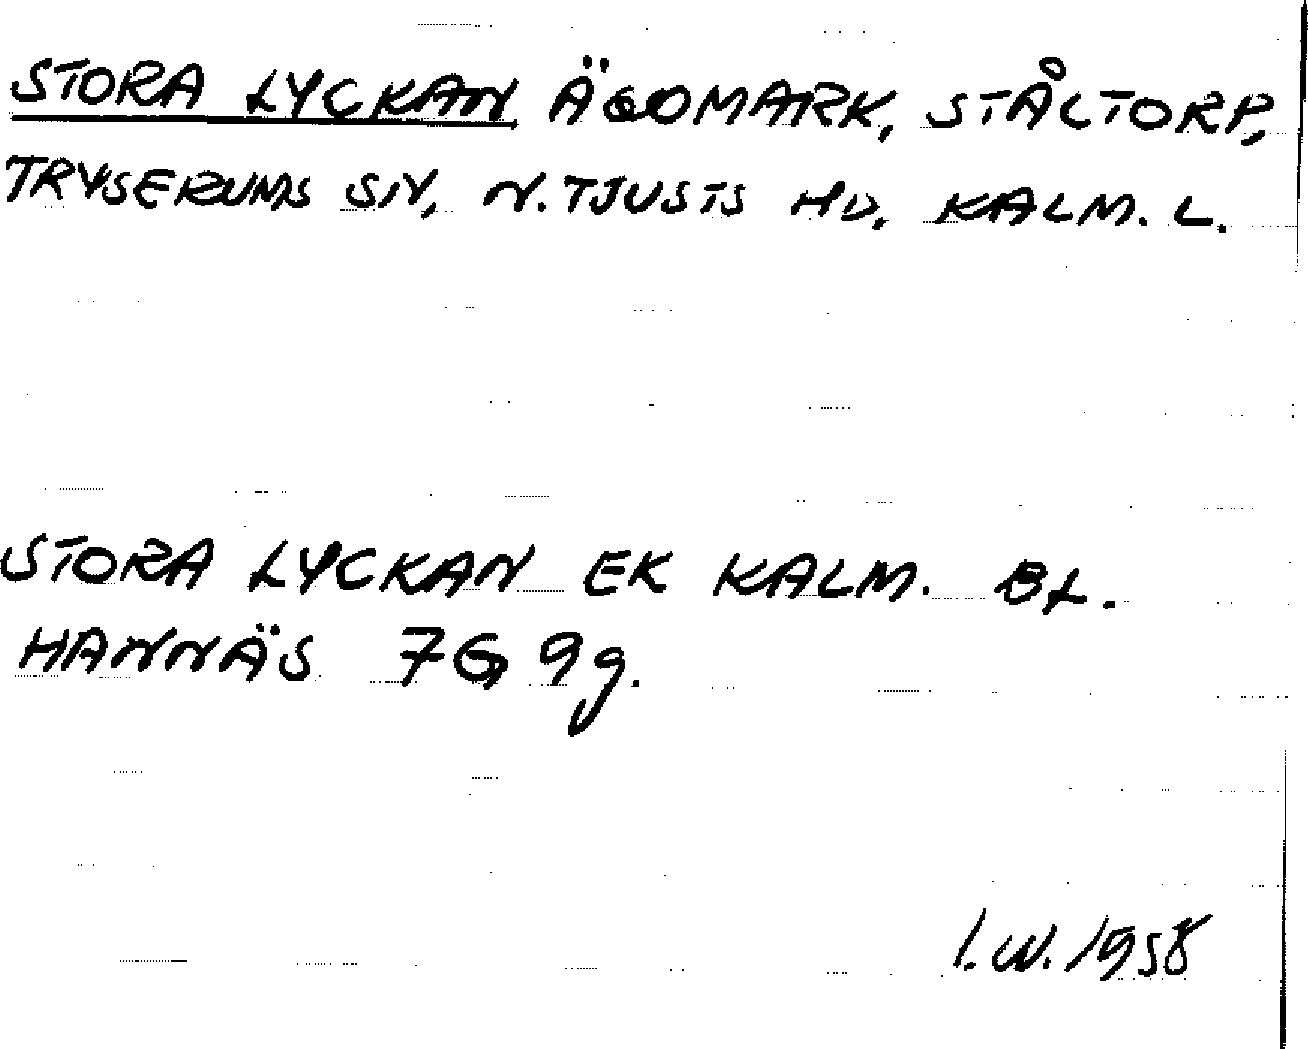 STORA LYCKAN ÄGOMARK, STÅLTORP,
TRYSERUMS SN, N. TJUSTS HD, KALM. L.
STORA LYCKAN EK KALM. BL.
HANNÄS 7G 9g.
I.W. 1958